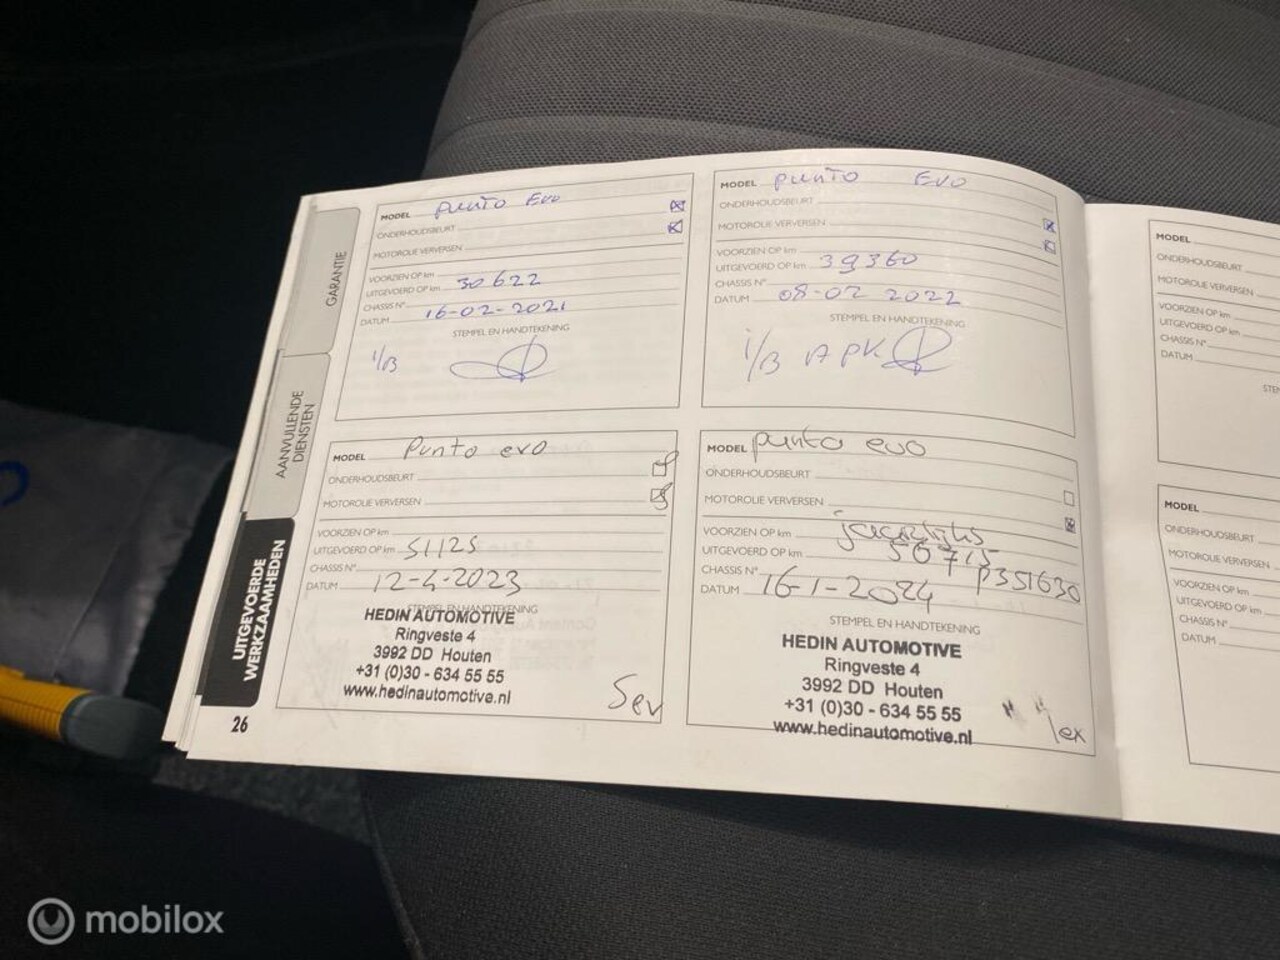 GARANTIE
AANVULLENDE
DIENSTEN
UITGEVOERDE
WERKZAAMHEDEN
26
MODEL Punto Evo
ONDERHOUDSBEURT
MOTOROLIE VERVERSEN
VOORZIEN OP km
UITGEVOERD OP km 30622
CHASSIS N°
DATUM 16-02-2021
STEMPEL EN HANDTEKENING
1/B
MODEL Punto Evo
ONDERHOUDSBEURT
MOTOROLIE VERVERSEN
VOORZIEN OP km
UITGEVOERD OP km 39360
CHASSIS N°
DATUM 08-02 2022
STEMPEL EN HANDTEKENING
1/B APK
MODEL Punto evo
ONDERHOUDSBEURT
MOTOROLIE VERVERSEN
VOORZIEN OP km
UITGEVOERD OP km 51125
CHASSIS N°
DATUM 12-4-2023
STEMPEL EN HANDTEKENING
HEDIN AUTOMOTIVE
Ringveste 4
3992 DD Houten
+31 (0)30 - 634 55 55
www.hedinautomotive.nl
Sev
MODEL punto evo
ONDERHOUDSBEURT
MOTOROLIE VERVERSEN
VOORZIEN OP km jaarlijks
UITGEVOERD OP km 56715
CHASSIS N° P351630
DATUM 16-1-2024
STEMPEL EN HANDTEKENING
HEDIN AUTOMOTIVE
Ringveste 4
3992 DD Houten
+31 (0)30 - 634 55 55
www.hedinautomotive.nl
MODEL
ONDERHOUDSBEURT
MOTOROLIE VERVERSEN
VOORZIEN OP km
UITGEVOERD OP km
CHASSIS N°
DATUM
MODEL
ONDERHOUDSBEURT
MOTOROLIE VERVERSEN
VOORZIEN OP km
UITGEVOERD OP km
CHASSIS N°
DATUM
mobilox